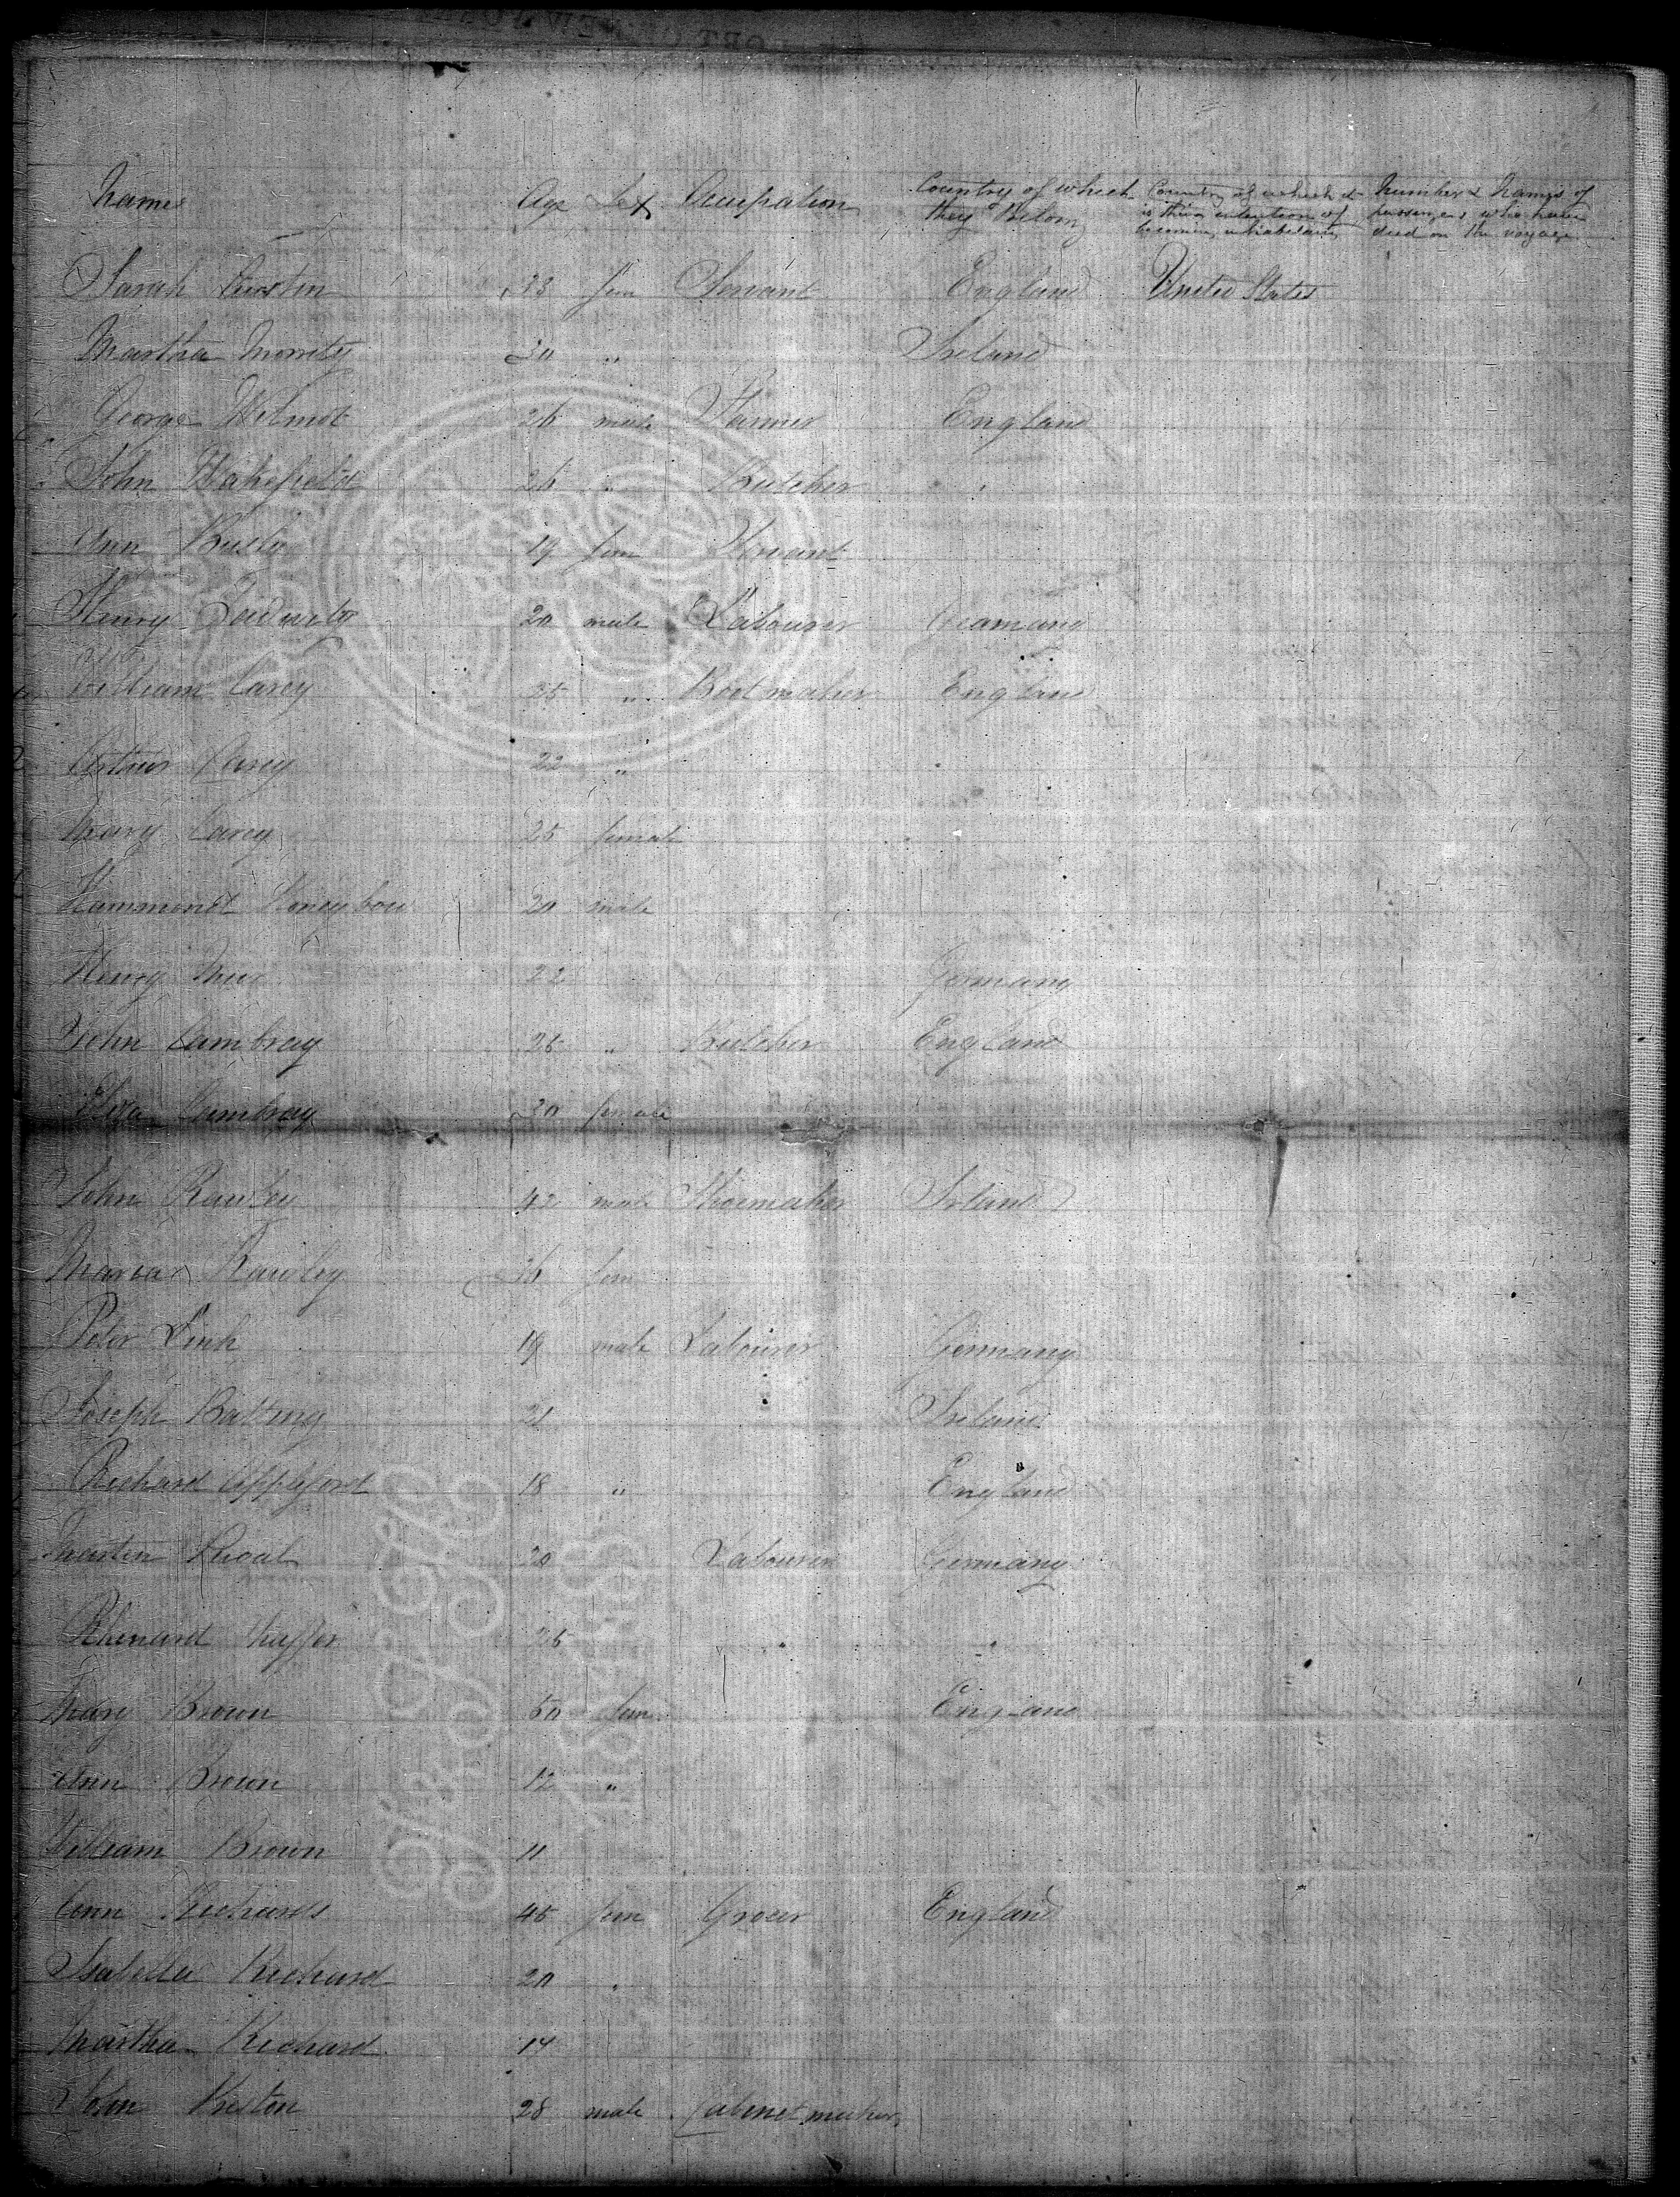 Names Age Sex Occupation Country of which they Belong Country of which it is their intention of becoming inhabitants Number & Names of passengers who have died on the voyage
Sarah 33 fem Servant England United States
Martha 30 " Ireland
George Wilmot 26 male Farmer England
John Wakefield 26 " Butcher "
Ann 19 fem Servant
Henry 20 male Labourer Geamany
William Carey 25 " Bootmaker England
Arthur Carey 22 "
Mary Carey 25 female
Hammond Honeybou 20 male
Henry 22 Germany
John Cambray 25 " Butcher England
Eliza Cambray 30 female
John Rawley 42 male Shoemaker Ireland
Maria Rawley 36 fem
Peter Link 19 male Labourer Germany
Joseph Batting 21 Ireland
Richard Appleford 18 " England
Martin 20 Labourer Germany
26 " "
Mary Brown 50 fem England
Ann Brown 12 "
William Brown 11
Ann Richards 45 fem Grocer England
Isabella Richard 20 "
Martha Richard 14
John 28 male Cabinet maker